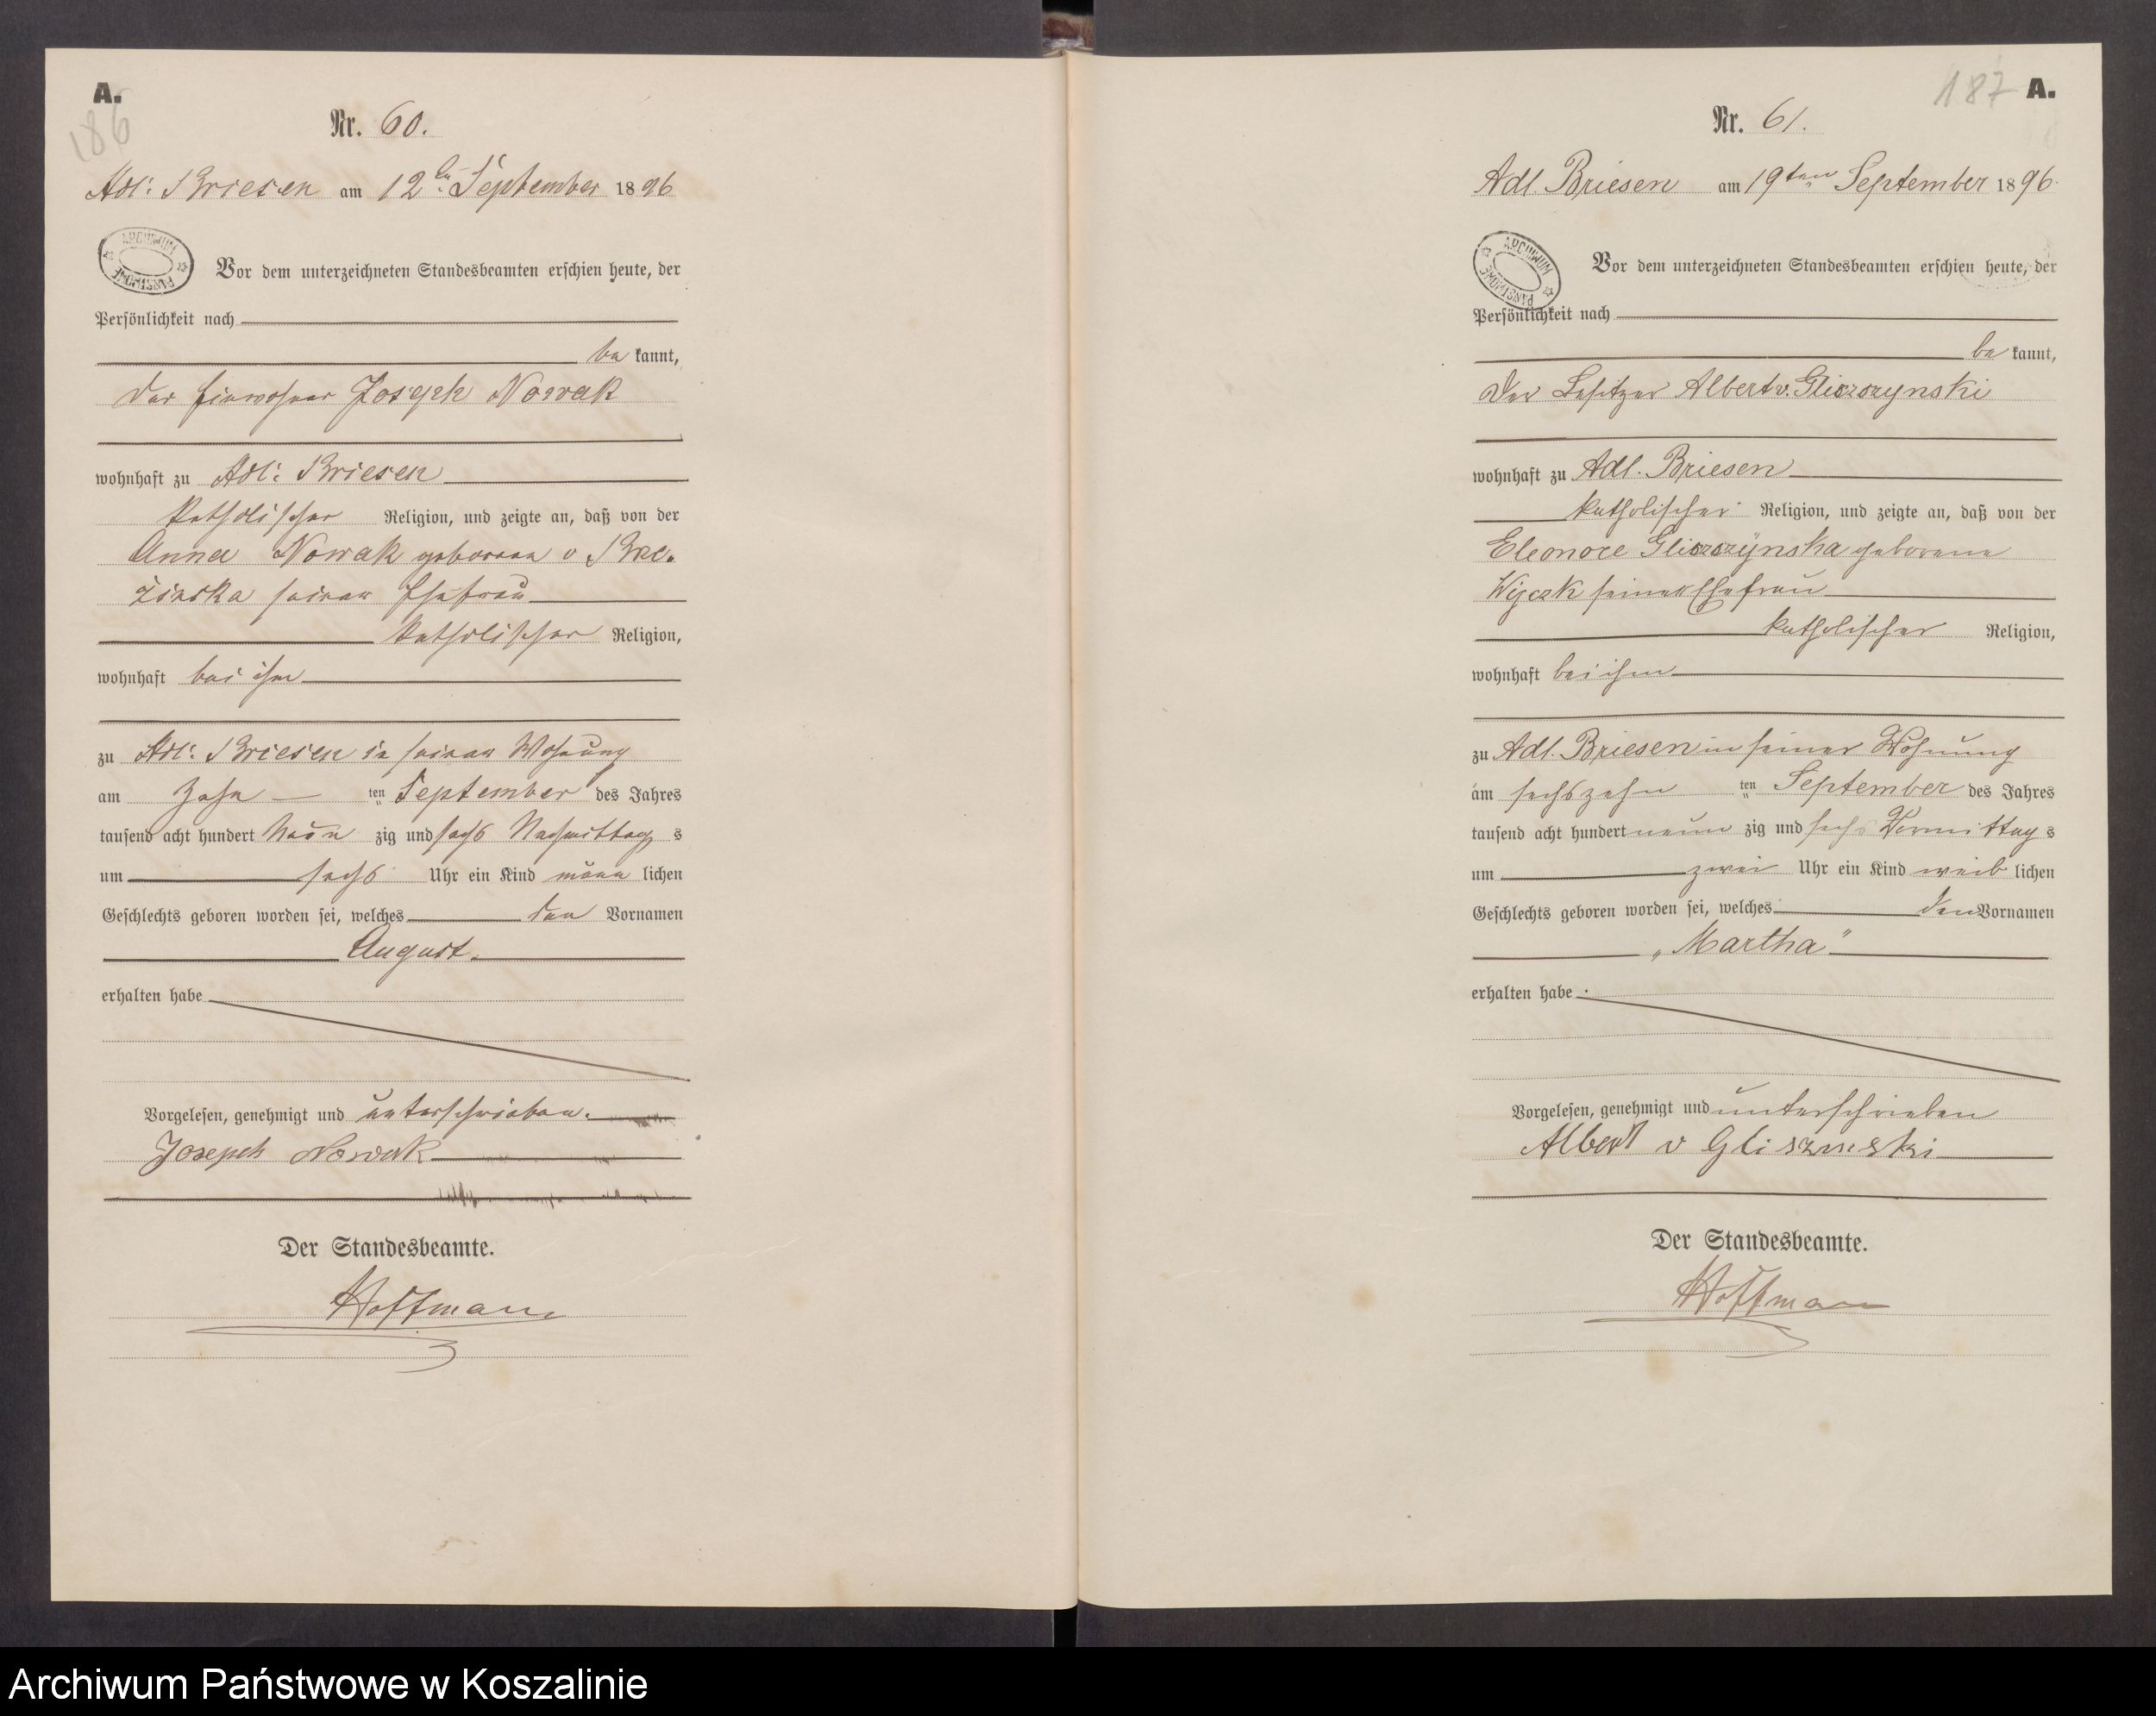 A.
186
Nr. 60.
Adl: Briesen am 12ten September 1896
ARCHIWUM PAŃSTWOWE
Vor dem unterzeichneten Standesbeamten erschien heute, der
Persönlichkeit nach
be kannt,
der Einwohner Joseph Nowak
wohnhaft zu Adl: Briesen
katholischer Religion, und zeigte an, daß von der
Anna Nowak geborene v Bre-
zinska seiner Ehefrau
katholischer Religion,
wohnhaft bei ihm
zu Adl: Briesen in seiner Wohnung
am zehn ten September des Jahres
tausend acht hundert neun zig und sechs Nachmittag s
um sechs Uhr ein Kind männ lichen
Geschlechts geboren worden sei, welches den Vornamen
August.
erhalten habe
Vorgelesen, genehmigt und unterschrieben.
Joseph Nowak
Der Standesbeamte.
Hoffmann
187 A.
Nr. 61.
Adl. Briesen am 19ten September 1896.
ARCHIWUM PAŃSTWOWE
Vor dem unterzeichneten Standesbeamten erschien heute, der
Persönlichkeit nach
be kannt,
Der Besitzer Albert v. Gliszczynski
wohnhaft zu Adl. Briesen
katholischer Religion, und zeigte an, daß von der
Eleonore Gliszczynska geborene
Wyczk seiner Ehefrau
katholischer Religion,
wohnhaft bei ihm
zu Adl. Briesen in seiner Wohnung
am sechszehn ten September des Jahres
tausend acht hundert neun zig und sechs Vormittag s
um zwei Uhr ein Kind weib lichen
Geschlechts geboren worden sei, welches den Vornamen
„Martha"
erhalten habe
Vorgelesen, genehmigt und unterschrieben
Albert v
Der Standesbeamte.
Hoffmann
Archiwum Państwowe w Koszalinie